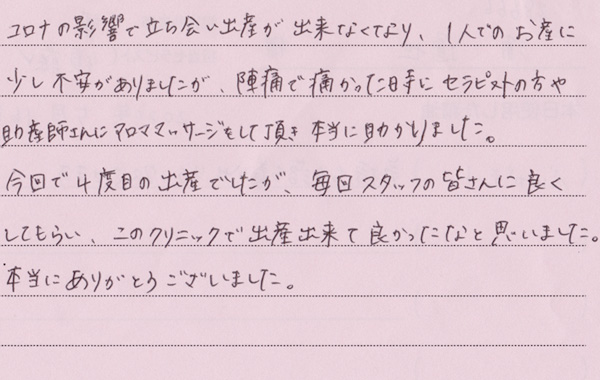 コロナの影響で立ち会い出産が出来なくなり、1人でのお産に
少し不安がありましたが、陣痛で痛かった時にセラピストの方や
助産師さんにアロママッサージをして頂き本当に助かりました。
今回で4度目の出産でしたが、毎回スタッフの皆さんに良く
してもらい、このクリニックで出産出来て良かったなと思いました。
本当にありがとうございました。